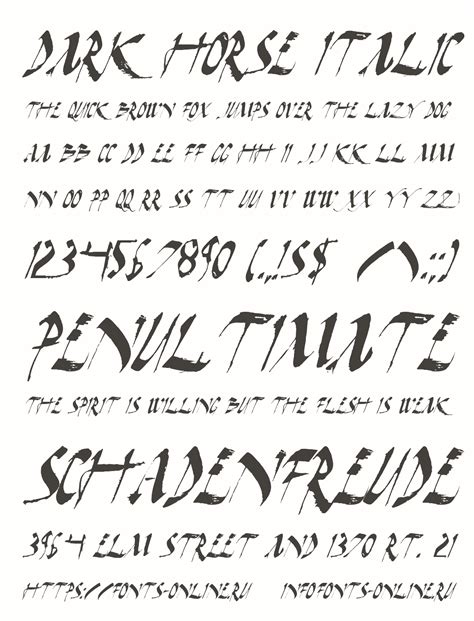 DARK HORSE ITALIC
THE QUICK BROWN FOX JUMPS OVER THE LAZY DOG
AA BB CC DD EE FF GG HH II JJ KK LL MM
NN OO PP QQ RR SS TT UU VV WW XX YY ZZ
1234567890 (.,!S$ /\:;)
PENULTIMATE
THE SPIRIT IS WILLING BUT THE FLESH IS WEAK
SCHADENFREUDE
3964 ELM STREET AND 1370 RT. 21
HTTPS://FONTS-ONLINE.RU INFOFONTS-ONLINE.RU